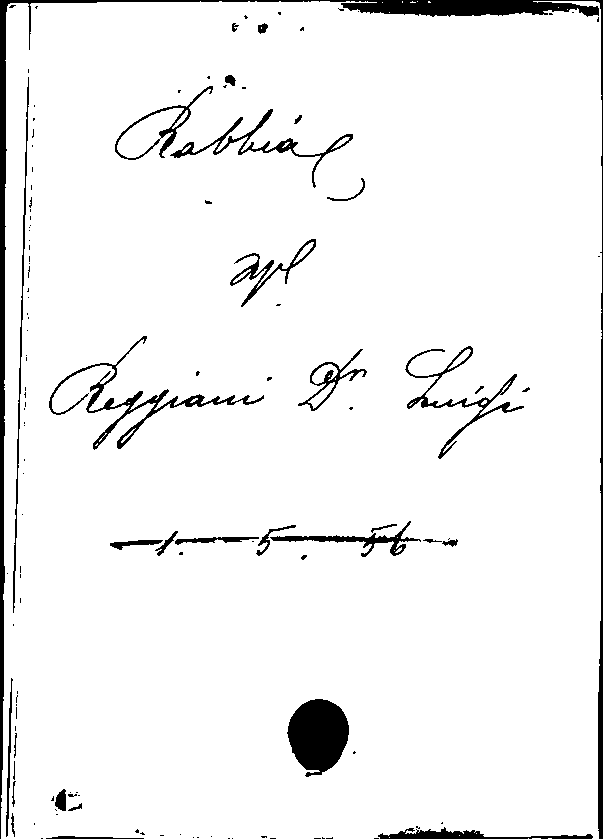 Rabbia
apl
Reggiani Dr. Luigi
1. 5. 56